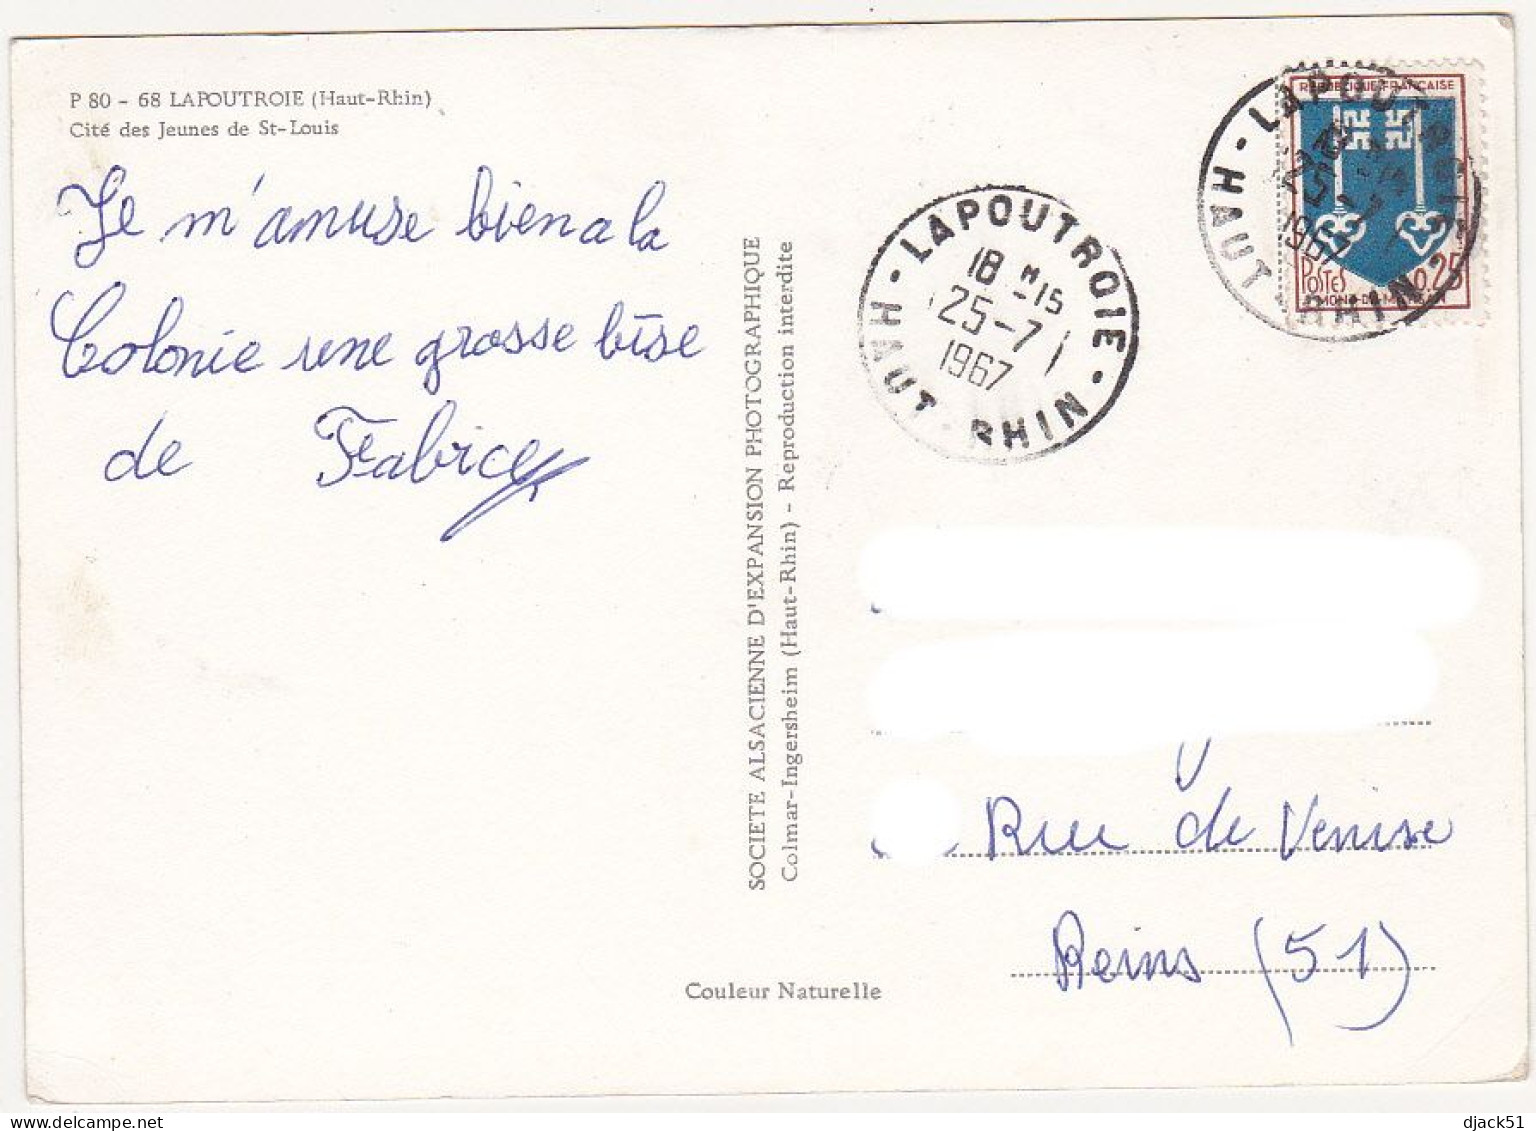 P 80 - 68 LAPOUTROIE (Haut-Rhin)
Cité des Jeunes de St-Louis
Je m'amuse bien a la
Colonie une grosse bise
de Fabrice
SOCIETE ALSACIENNE D'EXPANSION PHOTOGRAPHIQUE
Colmar-Ingersheim (Haut-Rhin) - Reproduction interdite
Couleur Naturelle
LAPOUTROIE
18 H -15
25-7
1967
HAUT-RHIN
LAPOUTROIE
25-7
1967
HAUT-RHIN
REPUBLIQUE FRANÇAISE
POSTES 0.25
MONT-DE-MARSAN
Rue de Venise
Reins (51)
djack51